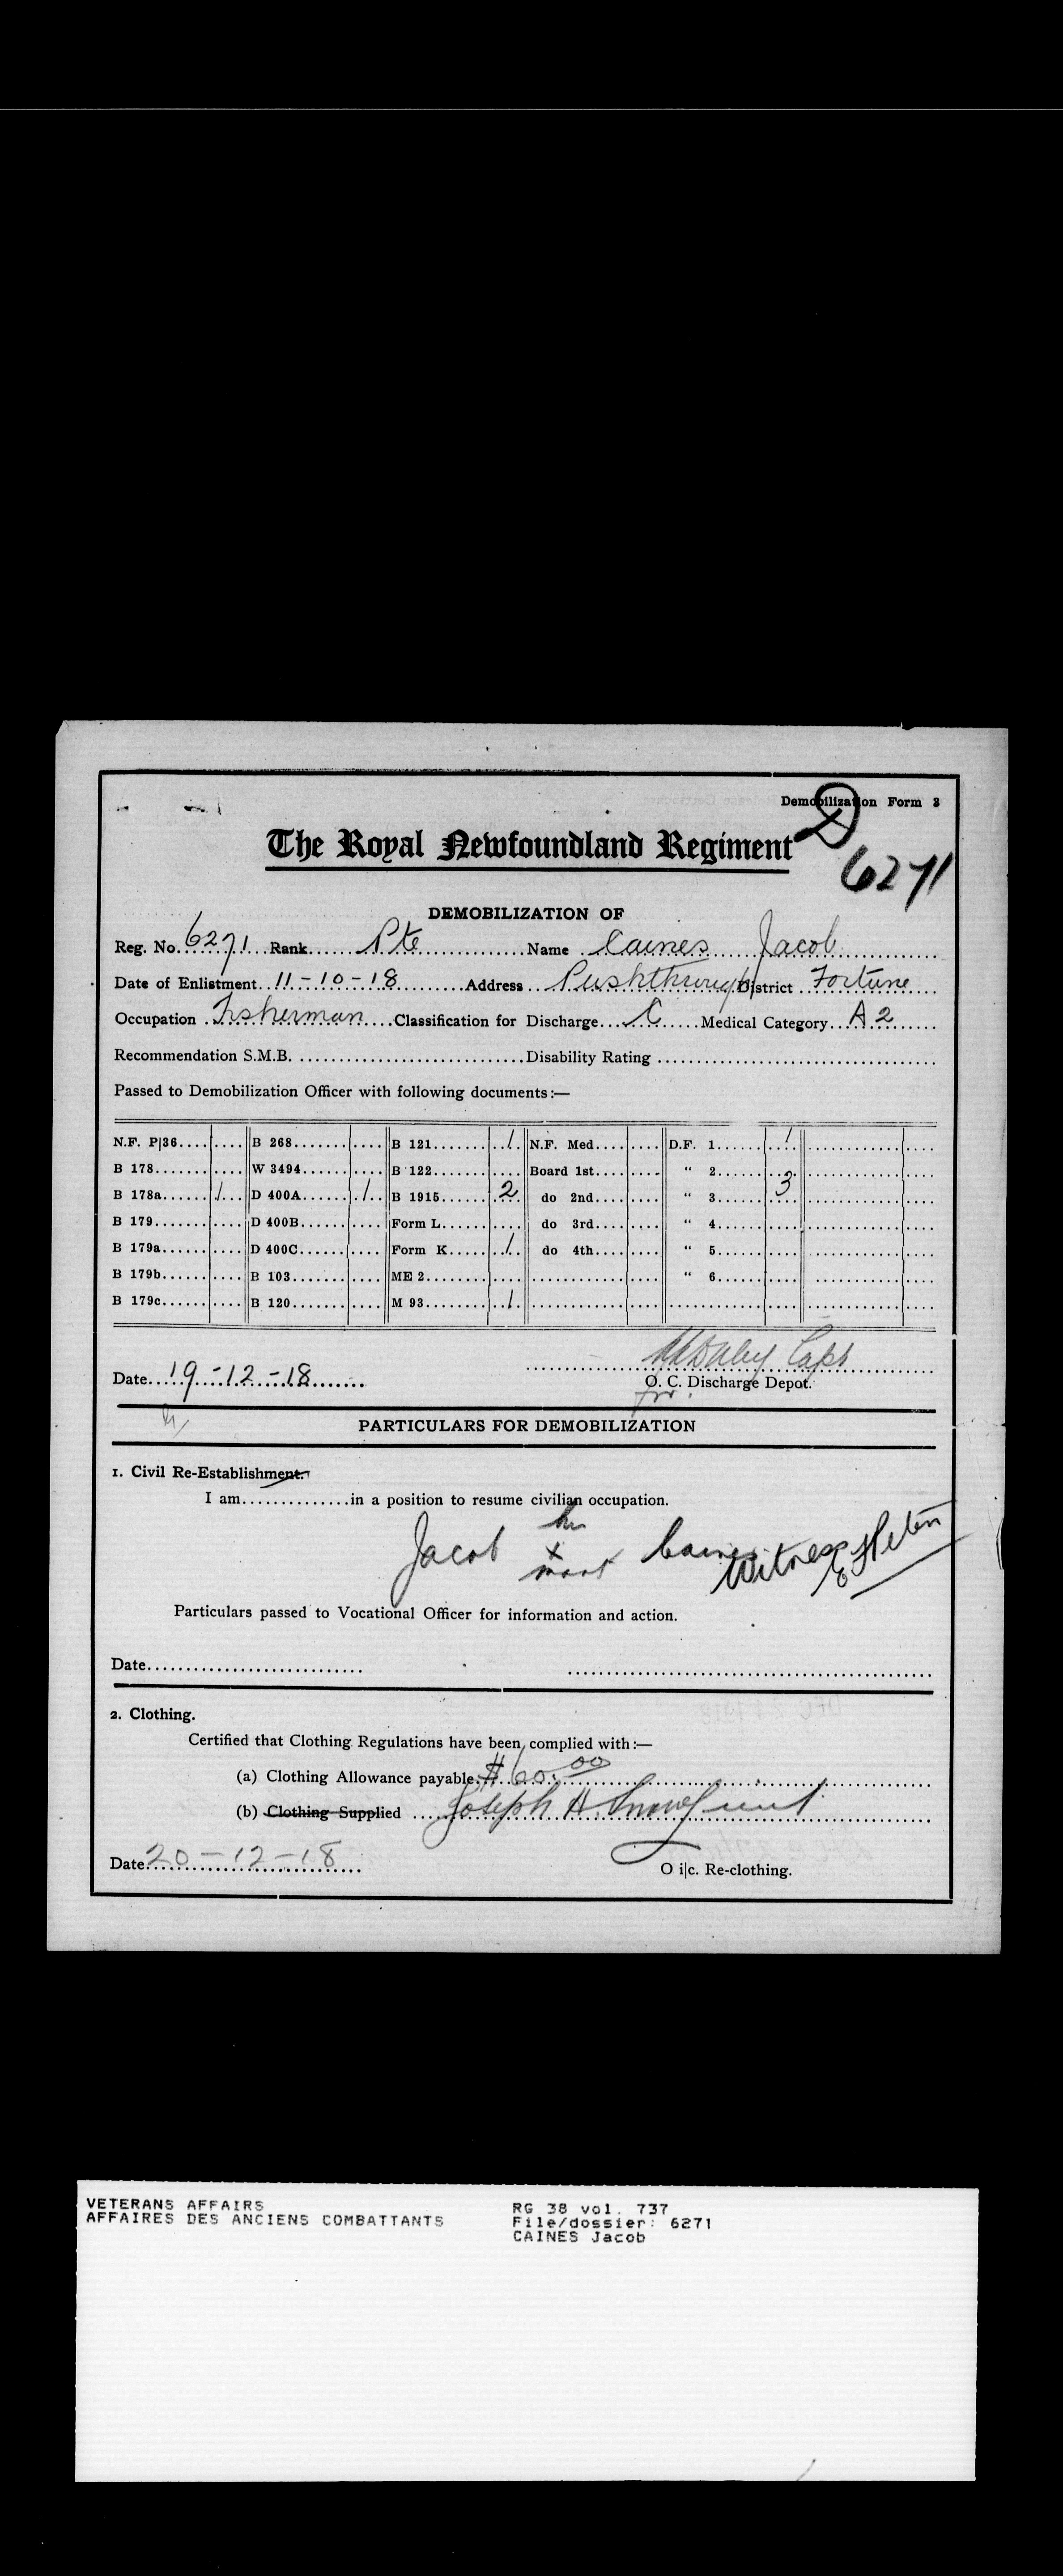 Demobilization Form 3
D
6271
The Royal Newfoundland Regiment
DEMOBILIZATION OF
Reg. No. 6271 Rank Pte Name Caines Jacob
Date of Enlistment 11-10-18 Address Pushthrough District Fortune
Occupation Fisherman Classification for Discharge C Medical Category A 2
Recommendation S.M.B. Disability Rating
Passed to Demobilization Officer with following documents:—
N.F. P|36 B 268 B 121 1 N.F. Med. D.F. 1 1
B 178 W 3494 B 122 Board 1st " 2
B 178a 1 D 400A 1 B 1915 2 do 2nd " 3 3
B 179 D 400B Form L do 3rd " 4
B 179a D 400C Form K 1 do 4th " 5
B 179b B 103 ME 2 " 6
B 179c B 120 M 93 1
Date 19-12-18 Capt
O. C. Discharge Depot.
for
PARTICULARS FOR DEMOBILIZATION
1. Civil Re-Establishment.
I am in a position to resume civilian occupation.
his
Jacob x Caines Witness
mark
Particulars passed to Vocational Officer for information and action.
Date
2. Clothing.
Certified that Clothing Regulations have been complied with:—
(a) Clothing Allowance payable $60.00
(b) Clothing Supplied Joseph H.
Date 20-12-18
O i|c. Re-clothing.
VETERANS AFFAIRS RG 38 vol. 737
AFFAIRES DES ANCIENS COMBATTANTS File/dossier: 6271
CAINES Jacob